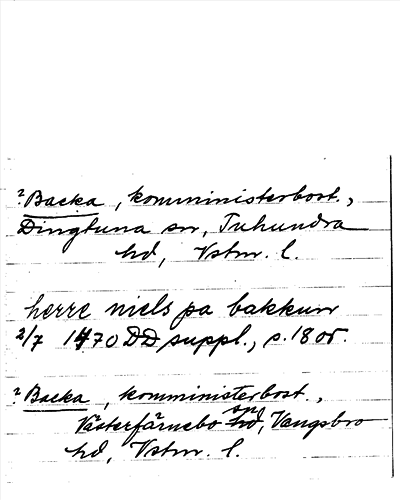 ? Backa, komministerbost.,
Dingtuna sn, Tuhundra
hd, Vstm. l.
herre niels pa bakkum
2/7 1470 DD suppl., s. 180
? Backa, komministerbost.,
Västerfärnebo sn, Vangsbro
hd, Vstm. l.